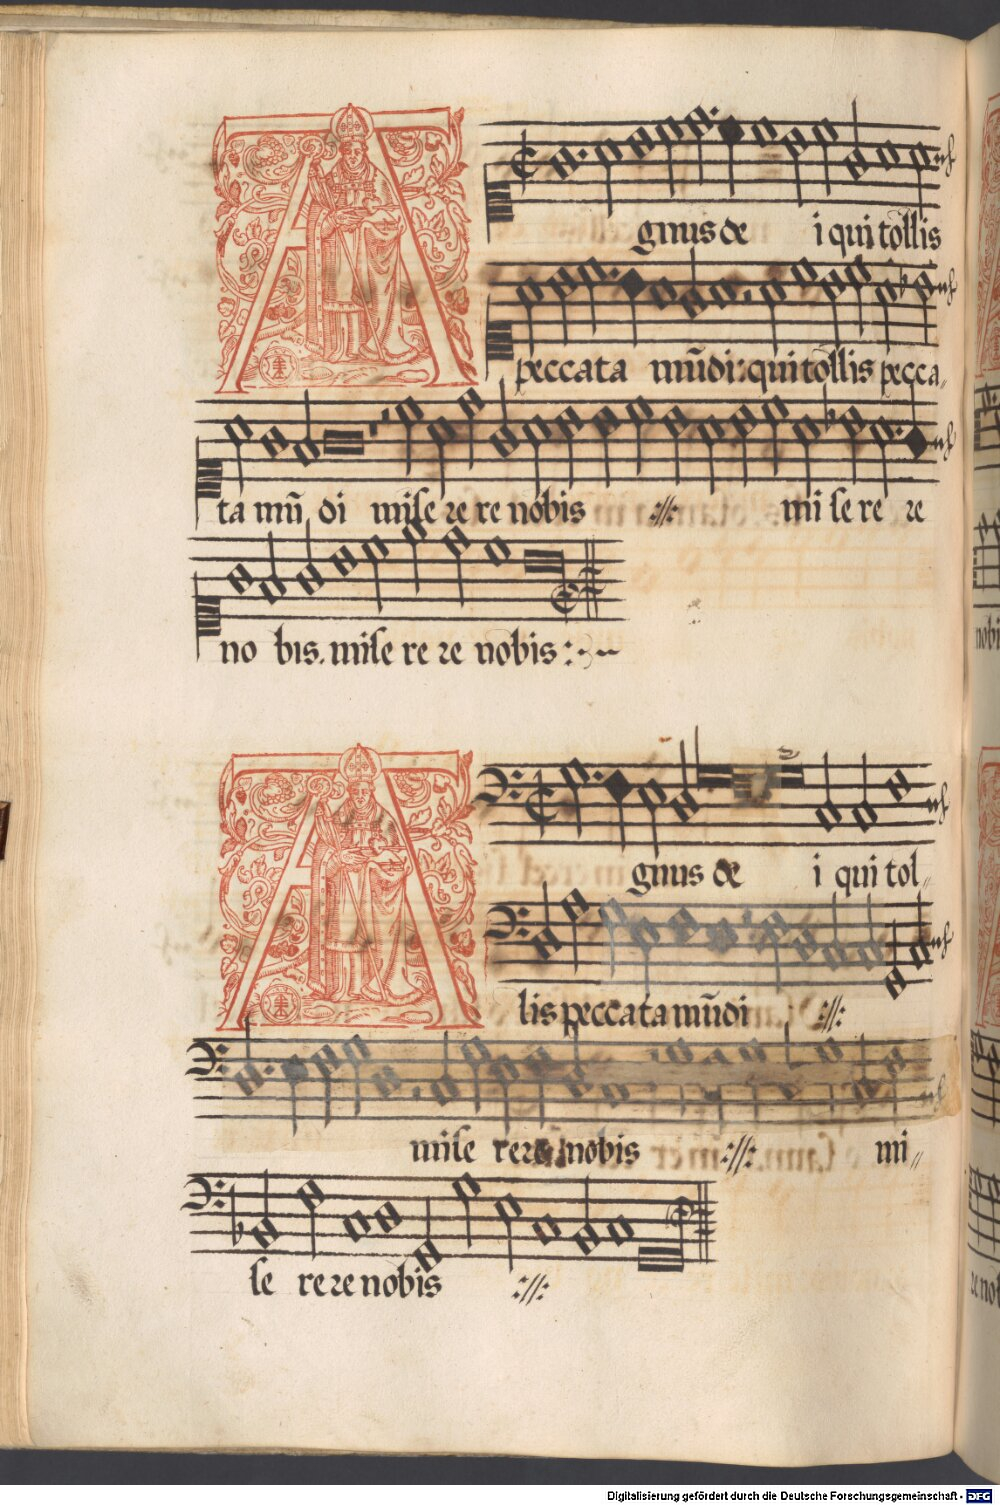 A gnus de i qui tollis
peccata mūdi: qui tollis pecca„
ta mū di mise re re nobis :||: mi se re re
no bis. mise re re nobis :
A gnus de i qui tol„
lis peccata mūdi :||:
mise rere nobis :||: mi„
se re re nobis :||:
Digitalisierung gefördert durch die Deutsche Forschungsgemeinschaft - DFG